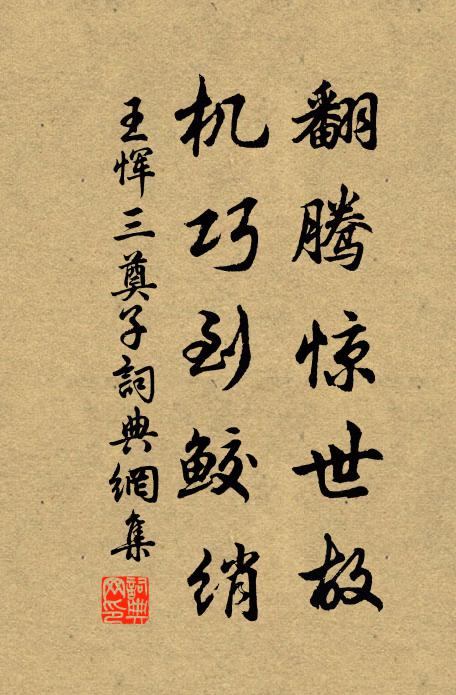 翻腾惊世故
机巧到鲛绡
王恽三奠子詞典網集
詞典网印